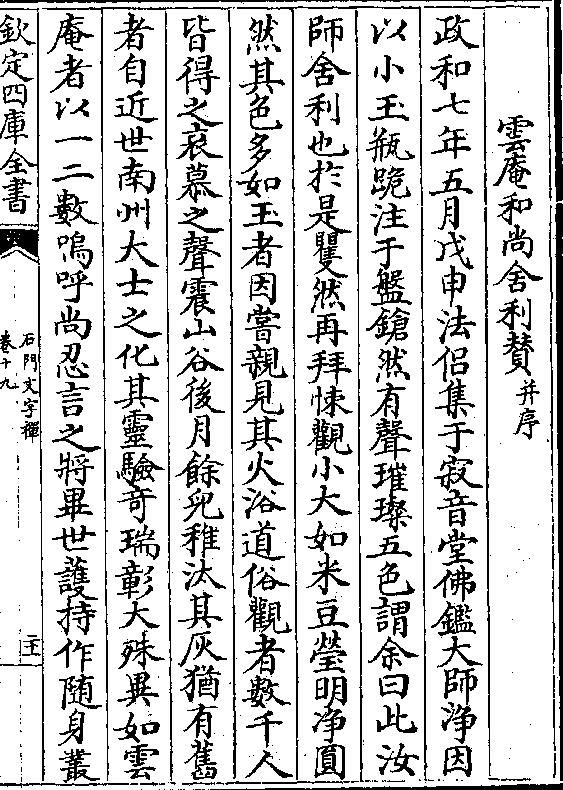 雲庵和尚舍利賛并序
政和七年五月戊申法侣集于寂音堂佛鑑大師浄因
以小玉瓶跪注于盤鎗然有聲璀璨五色謂余曰此汝
師舍利也於是瞿然再拜悚觀小大如米豆瑩明浄圓
然其色多如玉者因嘗親見其火浴道俗觀者數千人
皆得之哀慕之聲震山谷後月餘兒稚汰其灰猶有舊
者自近世南州大士之化其靈驗奇瑞彰大殊異如雲
庵者以一二數嗚呼尚忍言之將畢世護持作隨身叢
欽定四庫全書
石門文字禪
卷十九